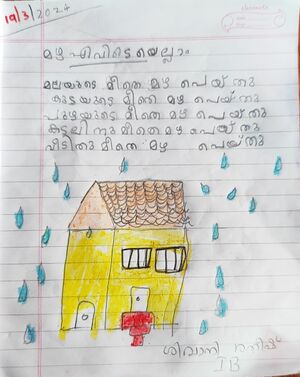 19/3/2024
classmate
മഴ എവിടെ യെല്ലാം
മലയുടെ മീതെ മഴ പെയ്തു
കുടയുടെ മീതെ മഴ പെയ്തു
പുഴയുടെ മീതെ മഴ പെയ്തു
കടലിനു മീതെ മഴ പെയ്തു
വീടിനു മീതെ മഴ പെയ്തു
ശിവാനി
I B